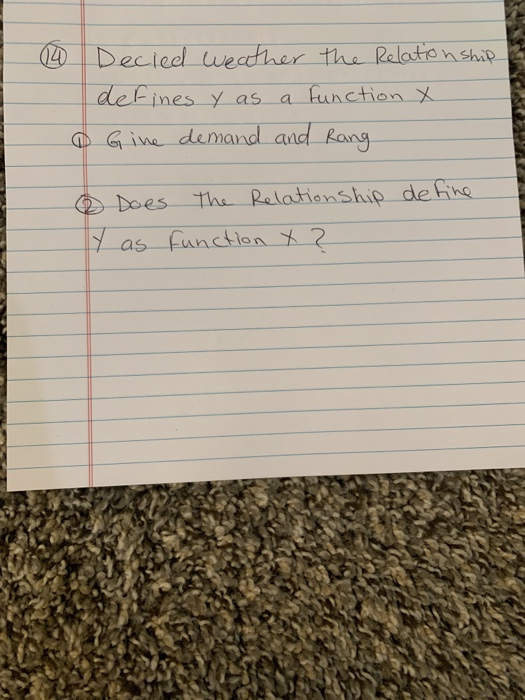 ⑭ Decied weather the Relationship
defines y as a function X
① Give demand and Rang
② Does the Relationship define
Y as function X ?